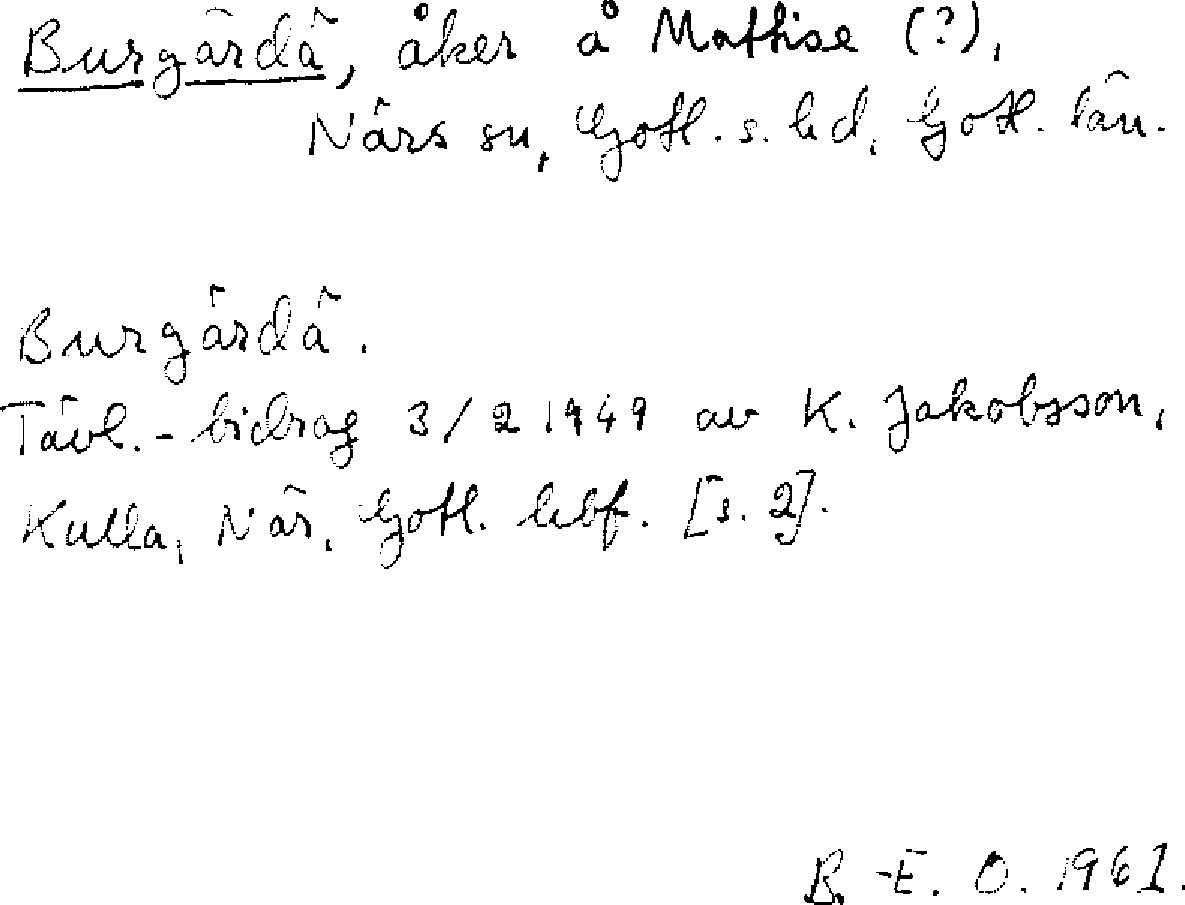 Burgärdä, åker å Mathise (?),
Närs sn, Gotl. s. hd, Gotl. län.
Burgärdä.
Tävl.-bidrag 3/2 1949 av K. Jakobsson,
Kulla, När, Gotl. hbf. [s. 2].
B.-E. O. 1961.